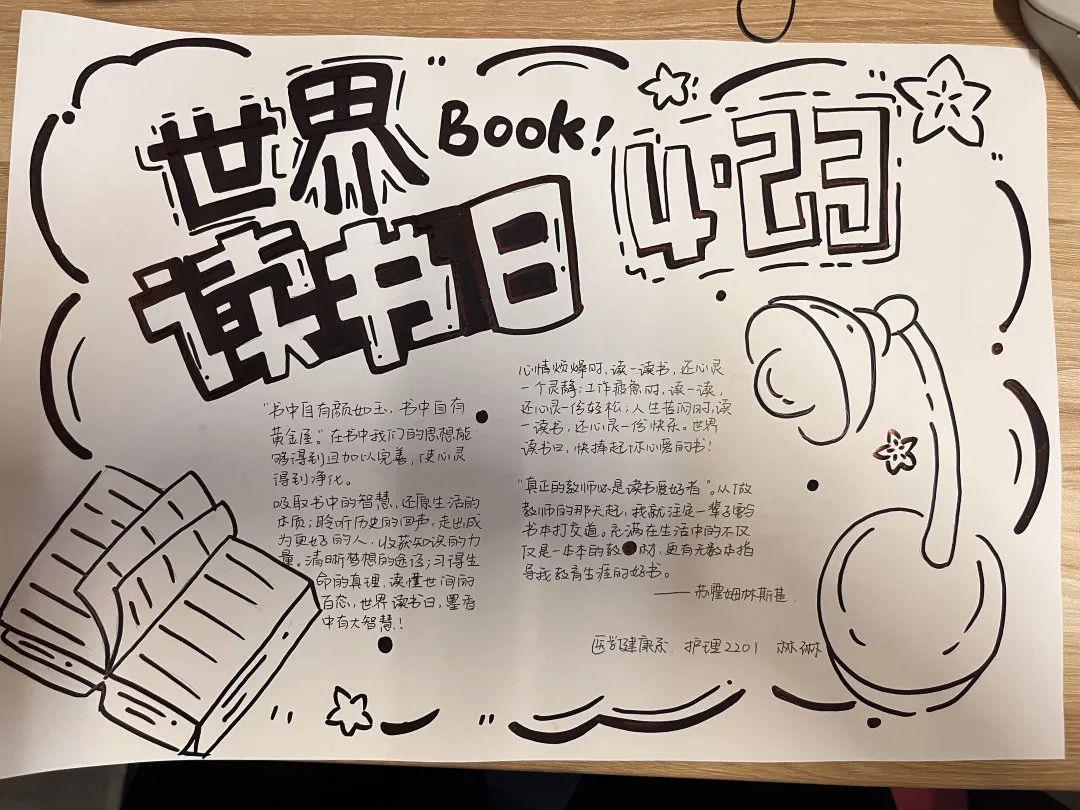 世界
Book!
4·23
读书日
"书中自有颜如玉,书中自有
黄金屋。"在书中我们的思想能
够得到且加以完善,使心灵
得到净化。
吸取书中的智慧,还原生活的
本质;聆听历史的回声,走出成
为更好的人,收获知识的力
量。清晰梦想的途径;习得生
命的真理,读懂世间的
百态,世界读书日,墨香
中有大智慧!
心情烦燥时,读一读书,还心灵
一个灵静;工作疲惫时,读一读,
还心灵一份轻松;人生苦闷时,读
一读书,还心灵一份快乐。世界
读书日,快捧起你心爱的书!
"真正的教师必是读书爱好者"。从做
教师的那天起,我就注定一辈子要与
书本打交道。充满在生活中的不仅
仅是一本本的教 时,更有无数本指
导我教育生涯的好书。
——苏霍姆林斯基.
医学健康系. 护理2201 林琳